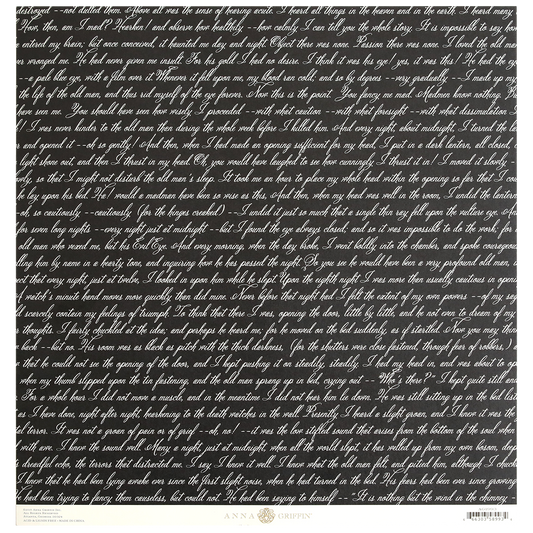 destroyed --not dulled them. Above all was the sense of hearing acute. I heard all things in the heaven and in the earth. I heard many
How, then, am I mad? Hearken! and observe how healthily --how calmly I can tell you the whole story. It is impossible to say how
entered my brain; but once conceived, it haunted me day and night. Object there was none. Passion there was none. I loved the old man
wronged me. He had never given me insult. For his gold I had no desire. I think it was his eye! yes, it was this! He had the eye
--a pale blue eye, with a film over it. Whenever it fell upon me, my blood ran cold; and so by degrees --very gradually --I made up my
the life of the old man, and thus rid myself of the eye forever. Now this is the point. You fancy me mad. Madmen know nothing.
have seen me. You should have seen how wisely I proceeded --with what caution --with what foresight --with what dissimulation
I was never kinder to the old man than during the whole week before I killed him. And every night, about midnight, I turned the
and opened it --oh so gently! And then, when I had made an opening sufficient for my head, I put in a dark lantern, all closed,
light shone out, and then I thrust in my head. Oh, you would have laughed to see how cunningly I thrust it in! I moved it slowly
so that I might not disturb the old man's sleep. It took me an hour to place my whole head within the opening so far that I
lay upon his bed. Ha! would a madman have been so wise as this, And then, when my head was well in the room, I undid the lantern
oh, so cautiously --cautiously (for the hinges creaked) --I undid it just so much that a single thin ray fell upon the vulture eye. And
for seven long nights --every night just at midnight --but I found the eye always closed; and so it was impossible to do the work; for
old man who vexed me, but his Evil Eye. And every morning, when the day broke, I went boldly into the chamber, and spoke courageously
calling him by name in a hearty tone, and inquiring how he has passed the night. So you see he would have been a very profound old man,
that every night, just at twelve, I looked in upon him while he slept. Upon the eighth night I was more than usually cautious in opening
watch's minute hand moves more quickly than did mine. Never before that night had I felt the extent of my own powers --of my
scarcely contain my feelings of triumph. To think that there I was, opening the door, little by little, and he not even to dream of my
thoughts. I fairly chuckled at the idea; and perhaps he heard me; for he moved on the bed suddenly, as if startled. Now you may think
back --but no. His room was as black as pitch with the thick darkness, (for the shutters were close fastened, through fear of robbers,)
that he could not see the opening of the door, and I kept pushing it on steadily, steadily. I had my head in, and was about to
when my thumb slipped upon the tin fastening, and the old man sprang up in bed, crying out -- "Who's there?" I kept quite still
For a whole hour I did not move a muscle, and in the meantime I did not hear him lie down. He was still sitting up in the bed
as I have done, night after night, hearkening to the death watches in the wall. Presently I heard a slight groan, and I knew it was the
terror. It was not a groan of pain or of grief --oh, no! --it was the low stifled sound that arises from the bottom of the soul when
with awe. I knew the sound well. Many a night, just at midnight, when all the world slept, it has welled up from my own bosom,
dreadful echo, the terrors that distracted me. I say I knew it well. I knew what the old man felt, and pitied him, although I
that he had been lying awake ever since the first slight noise, when he had turned in the bed. His fears had been ever since growing
had been trying to fancy them causeless, but could not. He had been saying to himself -- It is nothing but the wind in the chimney
ANNA GRIFFIN